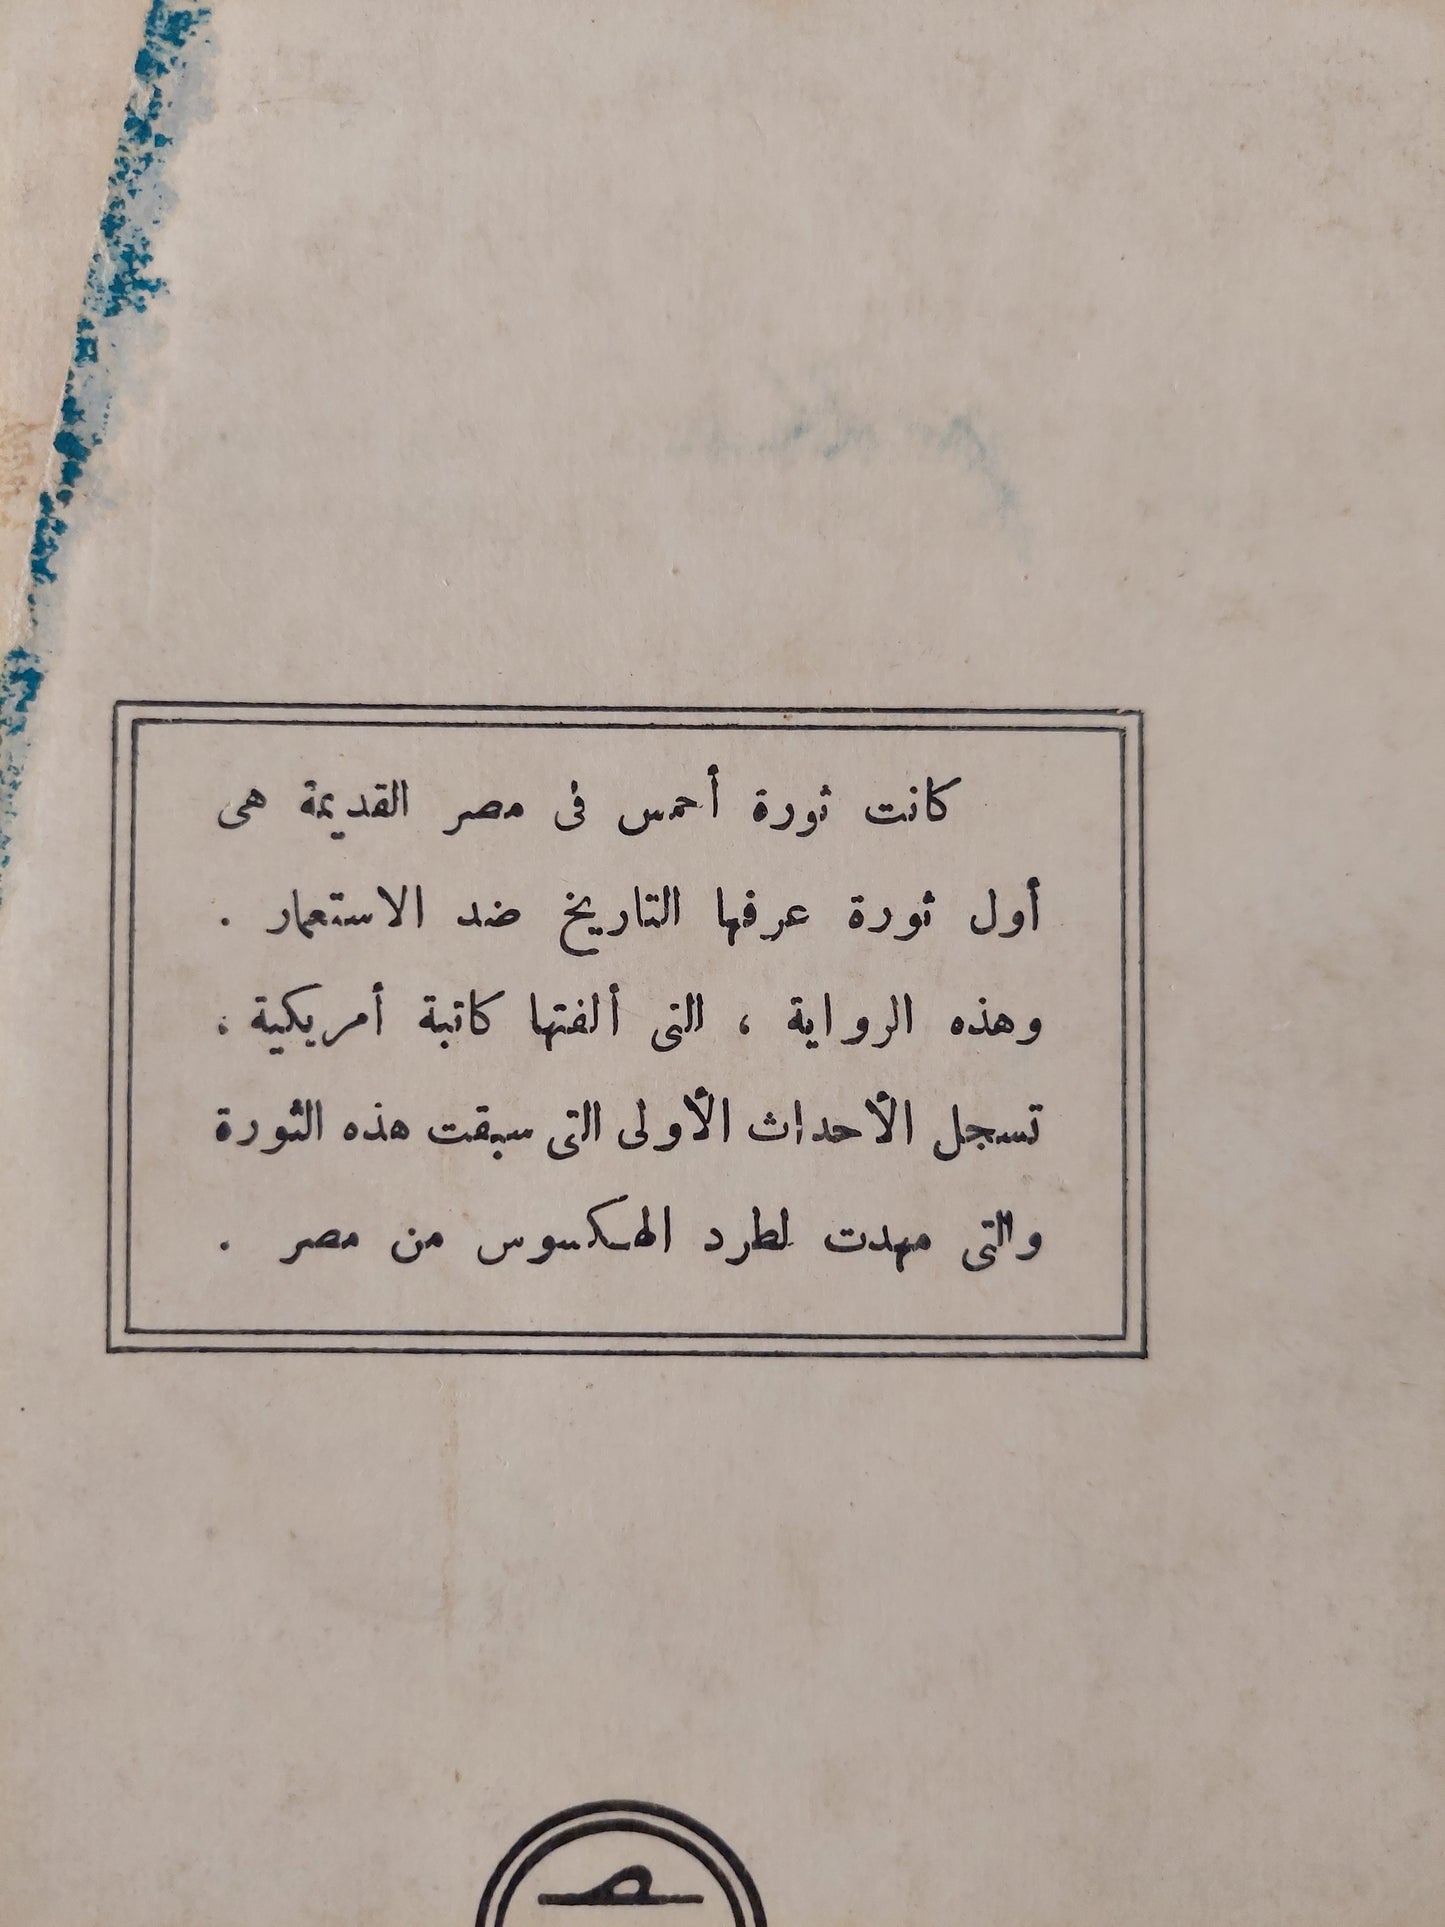 كانت ثورة أحمس فى مصر القديمة هى
أول ثورة عرفها التاريخ ضد الاستعمار .
وهذه الرواية ، التى ألفتها كاتبة أمريكية ،
تسجل الأحداث الأولى التى سبقت هذه الثورة
والتى مهدت لطرد الهكسوس من مصر .